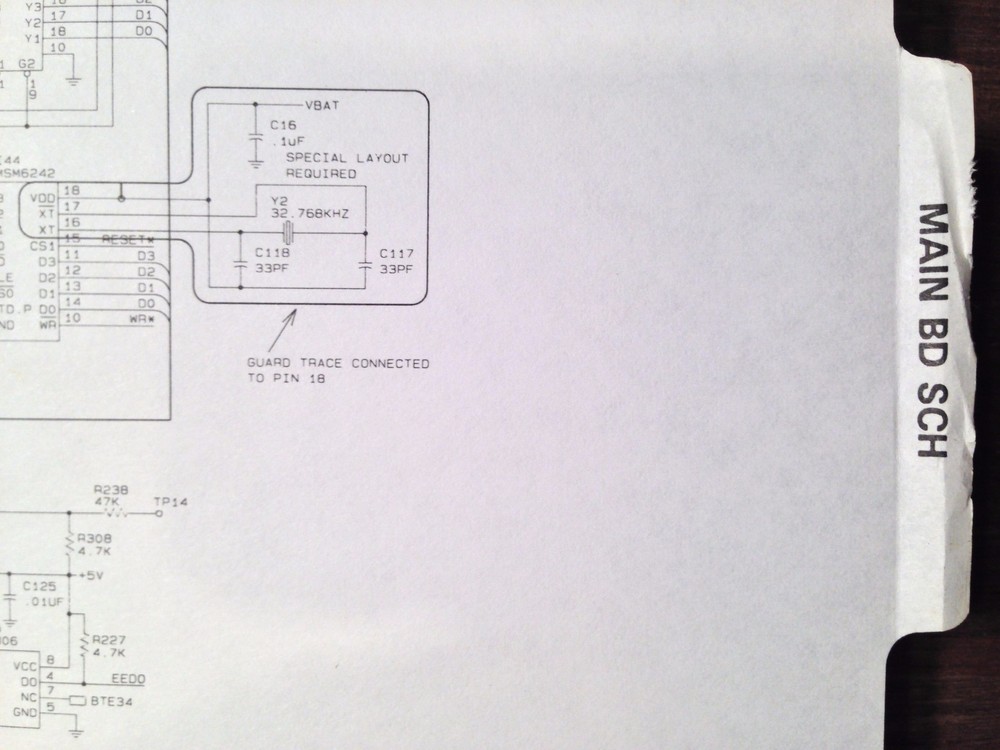 Y3
Y2
Y1
17
18
10
D1
D0
G2
1
9
VBAT
C16
.1uF
SPECIAL LAYOUT
REQUIRED
MSM6242
VDD
XT
XT
CS1
D3
D2
D1
D0
WR
18
17
16
15
11
12
13
14
10
RESET*
D3
D2
D1
D0
WR*
Y2
32.768KHZ
C118
33PF
C117
33PF
GUARD TRACE CONNECTED
TO PIN 18
R238
47K
TP14
R308
4.7K
+5V
C125
.01UF
R227
4.7K
VCC
DO
NC
GND
8
4
7
5
EEDO
BTE34
MAIN BD SCH